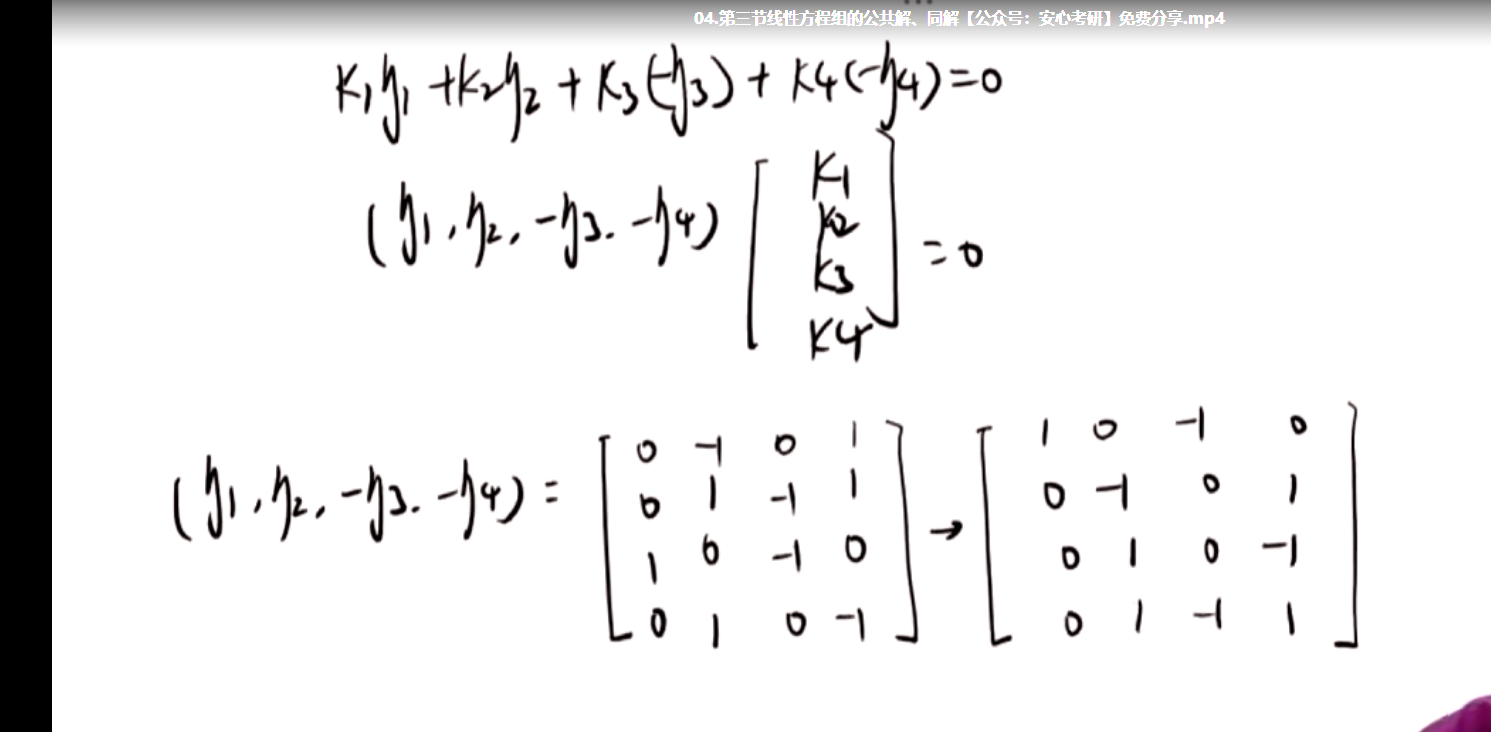 04.第三节线性方程组的公共解、同解【公众号：安心考研】免费分享.mp4
K₁η₁ + K₂η₂ + K₃(-η₃) + K₄(-η₄) = 0
(η₁, η₂, -η₃. -η₄) [K₁ K₂ K₃ K₄] = 0
(η₁, η₂, -η₃. -η₄) = [0 -1 0 1 → [1 0 -1 0
0 1 -1 1 0 -1 0 1
1 0 -1 0 0 1 0 -1
0 1 0 -1] 0 1 -1 1]